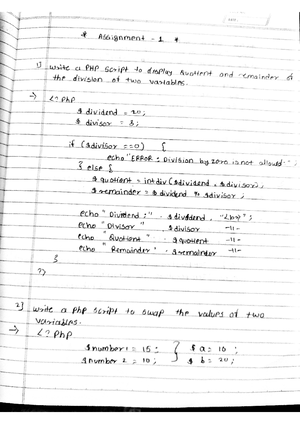 * Assignment - 1 *
1) write a PHP script to display Quotient and remainder of
the division of two variables.
→ <? PHP
$ dividend = 20;
$ divisor = 3;
if ($divisor ==0) {
echo "ERROR : Division by zero is not allowed";
} else {
$ quotient = intdiv ($dividend, $divisor);
$ remainder = $ dividend % $divisor ;
echo "Dividend :" . $ dividend . "<br>";
echo "Divisor" . $ divisor -11-
echo "Quotient" . $ quotient -11-
echo "Remainder" . $ remainder -11-
}
?>
2] write a php script to swap the values of two
variables.
→ <? PHP
$number1 = 15 ; } $ a = 10 ;
$number 2 = 10; $ b = 20;